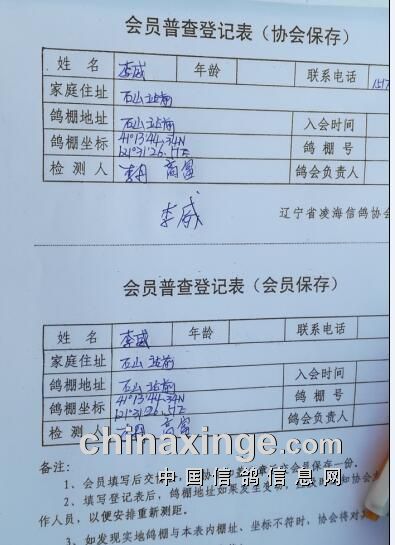 会员普查登记表（协会保存）
姓名 李威 年龄 联系电话
家庭住址 石山站前
鸽棚地址 石山站前 入会时间
鸽棚坐标 41°13′44.34N 鸽棚号
检测人 李丹 高富 鸽会负责人
李威
辽宁省凌海信鸽协会
会员普查登记表（会员保存）
姓名 李威 年龄 联系电话
家庭住址 石山站前
鸽棚地址 石山站前 入会时间
鸽棚坐标 41°13′44.34N 鸽棚号
检测人 高富 鸽会负责人
chinaxinge.com
中国信鸽信息网
备注：
1、会员填写后交协会，会员保存一份。
2、填写登记表后，鸽棚地址如果发生变动，
作人员，以便安排重新测距。
3、如发现实地鸽棚与本表内棚址、坐标不符时，协会将对其